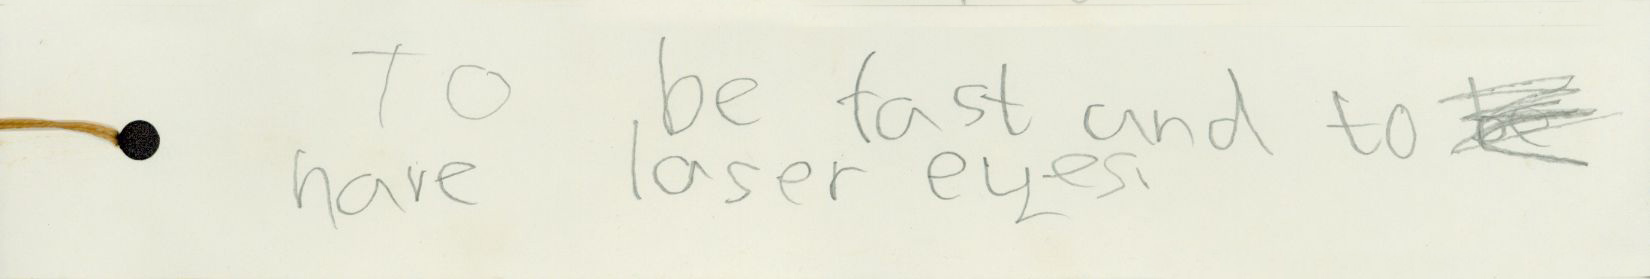 To be fast and to
have laser eyes.